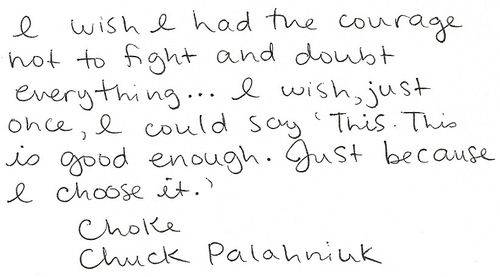 I wish I had the courage
not to fight and doubt
everything... I wish, just
once, I could say 'This. This
is good enough. Just because
I choose it.'
Choke
Chuck Palahniuk